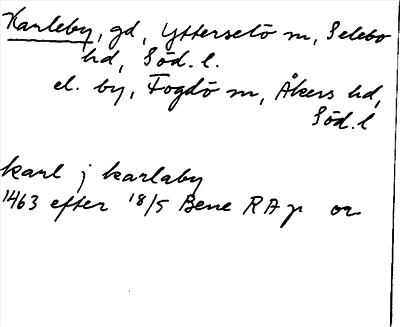 Karleby, gd, Ytterselö sn, Selebo
hd, Söd. l.
el. by, Fogdö sn, Åkers hd,
Söd. l
karl j karlaby
1463 efter 18/5 Bene RAp or